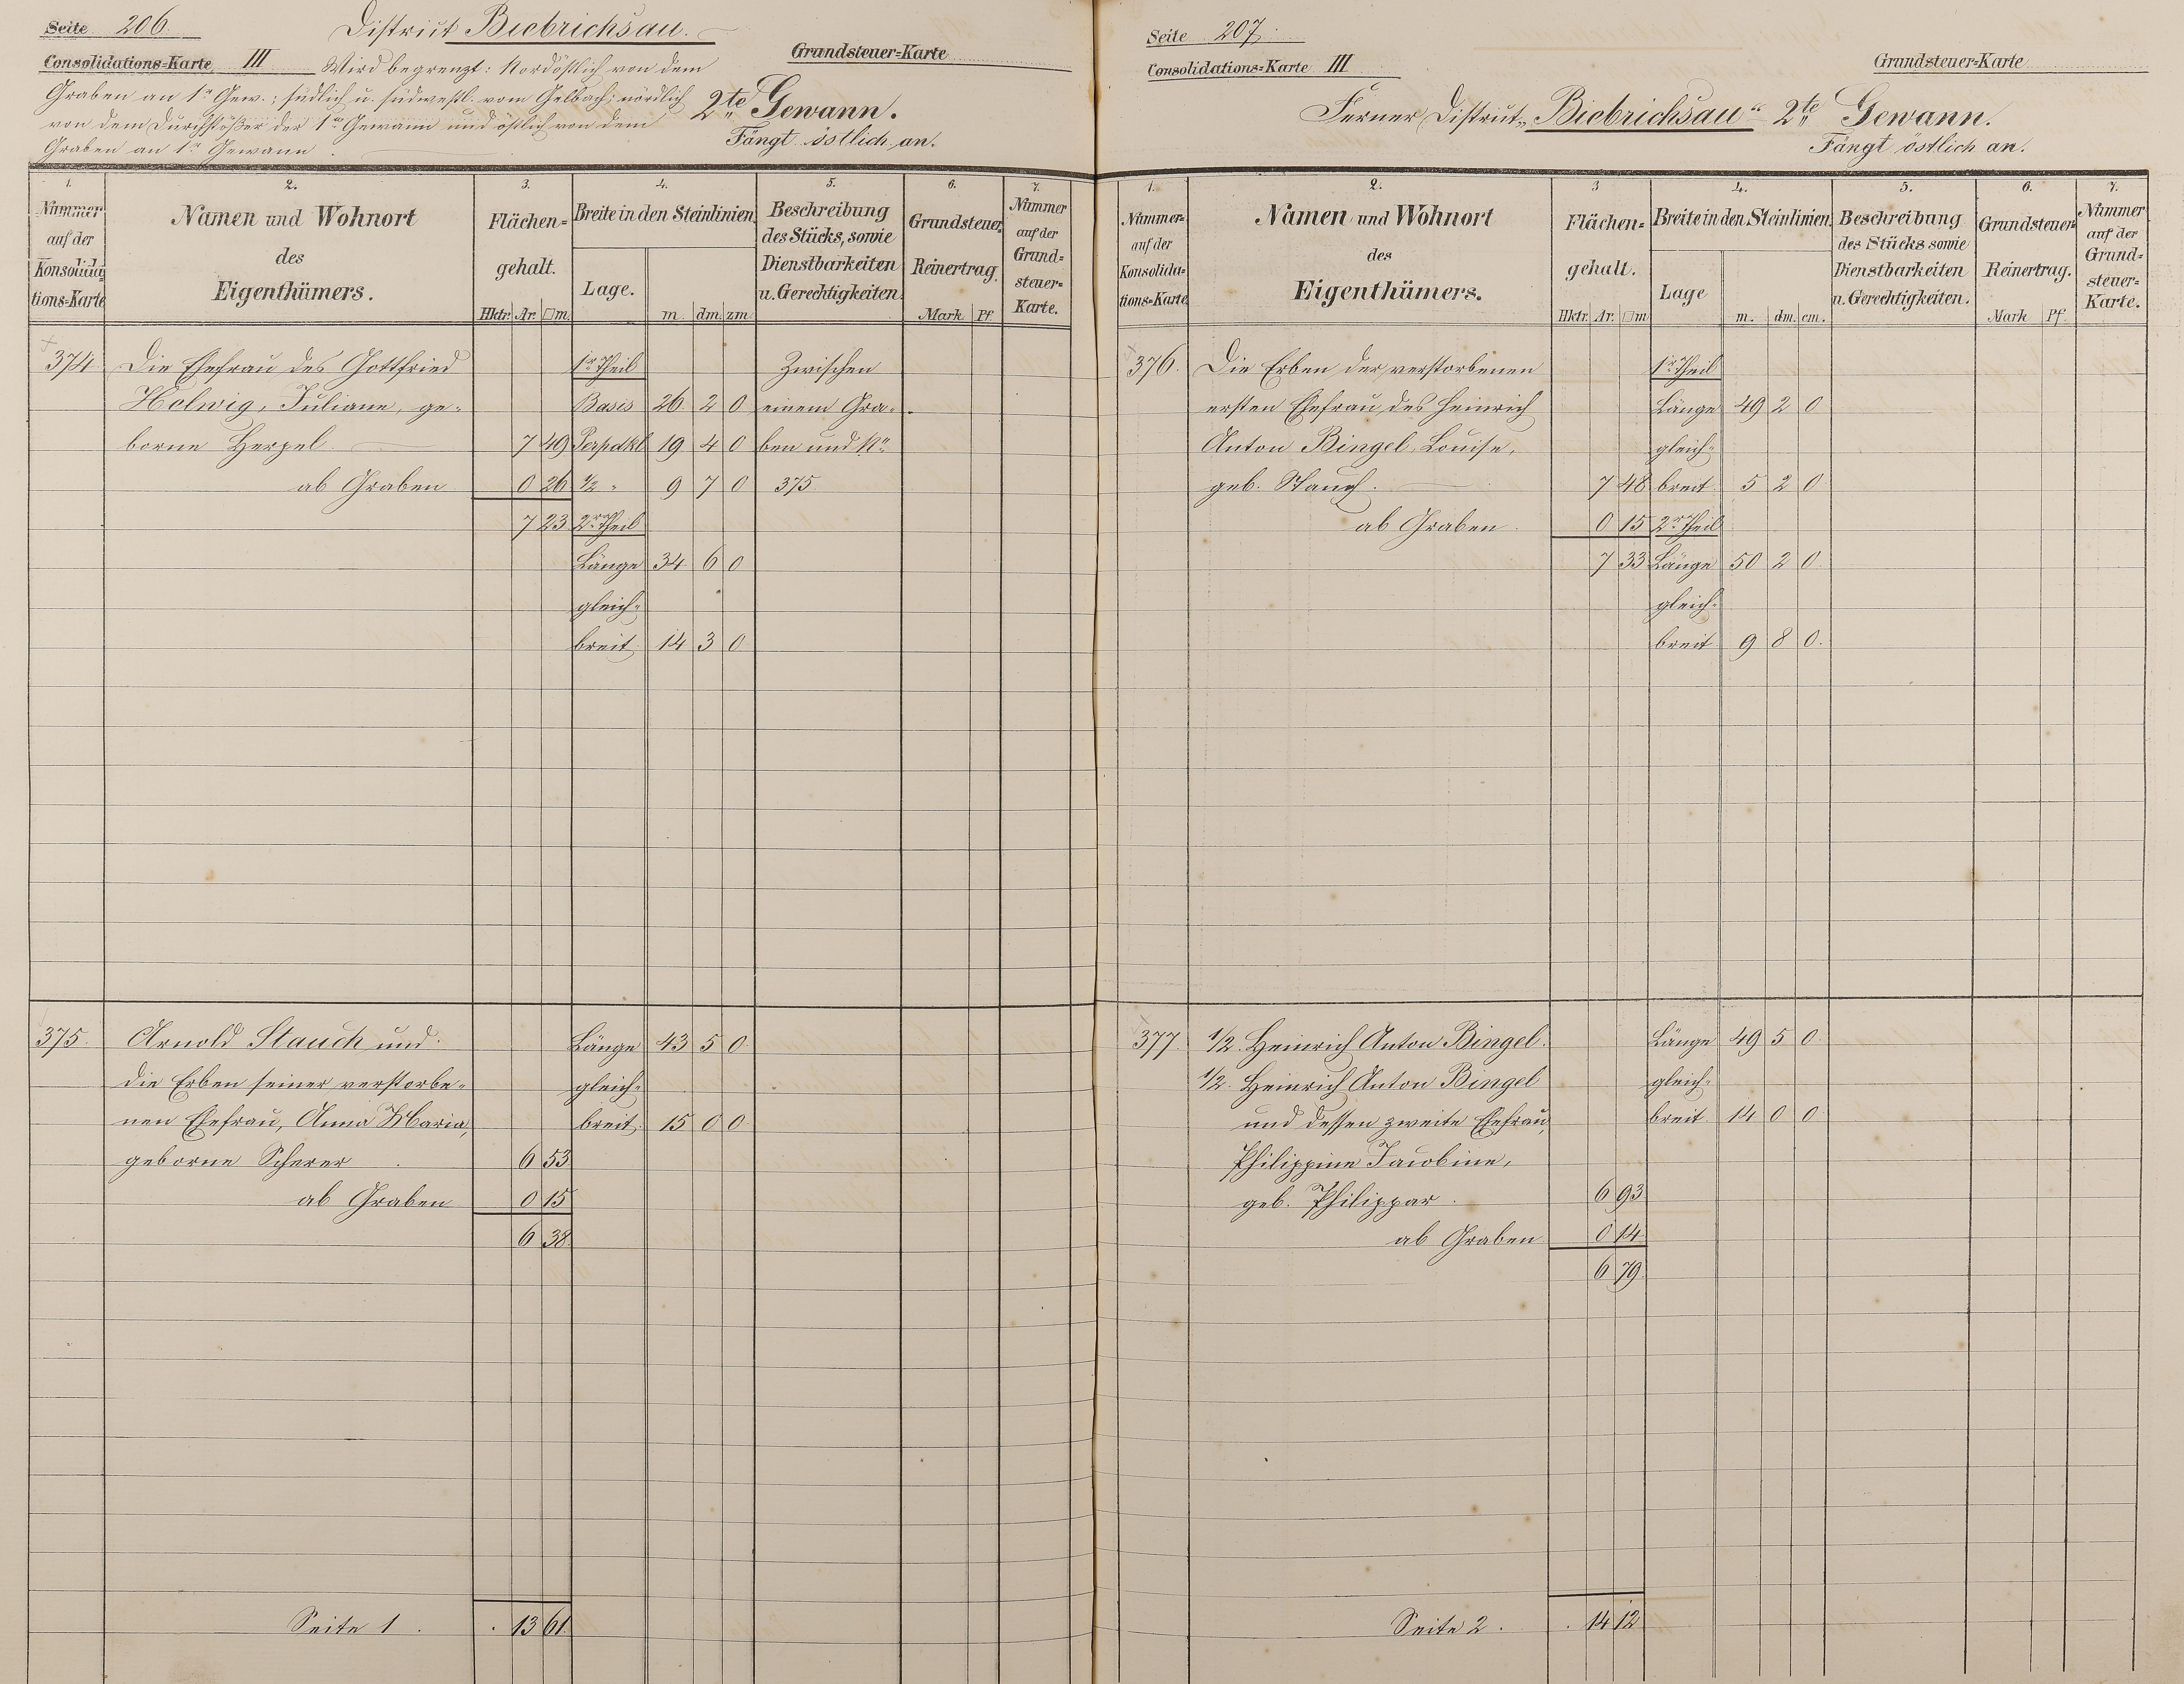 Seite 206.
District Biebrichsau.
Consolidations=Karte III
Grundsteuer=Karte
Wird begrenzt: Nordöstlich von dem
Graben an 1r Gew.; südlich u. südwestl. vom Gelbach; nördlich
von dem Durchstößer der 1ten Gewann und östlich von dem
Graben an 1r Gewann.
2te Gewann.
Fängt östlich an.
1. 2. 3. 4. 5. 6. 7.
Nummer auf der Konsolidations=Karte
Namen und Wohnort des Eigenthümers.
Flächen=gehalt.
Hktr. Ar. □m
Breite in den Steinlinien.
Lage. m. dm. zm
Beschreibung des Stücks, sowie Dienstbarkeiten u. Gerechtigkeiten.
Grundsteuer Reinertrag.
Mark Pf.
Nummer auf der Grund=steuer=Karte.
374 Die Ehefrau des Gottfried 1r Theil Zwischen
Helwig, Juliane, ge= Basis 26 2 0 einem Gra=
borne Herpel 7 49 Perpdkl 19 4 0 ben und Nr
ab Graben 0 26 1/2 " 9 7 0 375
7 23 2r Theil
Länge 34 6 0
gleich=
breit 14 3 0
375. Arnold Stauch und Länge 43 5 0
die Erben seiner verstorbe= gleich=
nen Ehefrau, Anna Maria, breit 15 0 0
geborne Scherer 6 53
ab Graben 0 15
6 38
Seite 1. 13 61
Seite 207.
Consolidations=Karte III
Grundsteuer=Karte
Ferner District „Biebrichsau“ 2te Gewann.
Fängt östlich an.
1. 2. 3 4. 5. 6. 7.
Nummer auf der Konsolida=tions=Karte
Namen und Wohnort des Eigenthümers.
Flächen=gehalt.
Hktr. Ar. □m
Breite in den Steinlinien.
Lage m. dm. cm.
Beschreibung des Stücks sowie Dienstbarkeiten u. Gerechtigkeiten.
Grundsteuer Reinertrag.
Mark Pf.
Nummer auf der Grund=steuer=Karte.
376. Die Erben der verstorbenen 1r Theil
ersten Ehefrau des Heinrich Länge 49 2 0
Anton Bingel, Louise, gleich=
geb. Stauch. 7 48 breit 5 2 0
ab Graben 0 15 2r Theil
7 33 Länge 50 2 0
gleich=
breit 9 8 0
377. 1/2. Heinrich Anton Bingel. Länge 49 5 0
1/2. Heinrich Anton Bingel gleich=
und dessen zweite Ehefrau, breit 14 0 0
Philippine Jacobine,
geb. Philippar. 6 93
ab Graben 0 14
6 79
Seite 2. 14 12